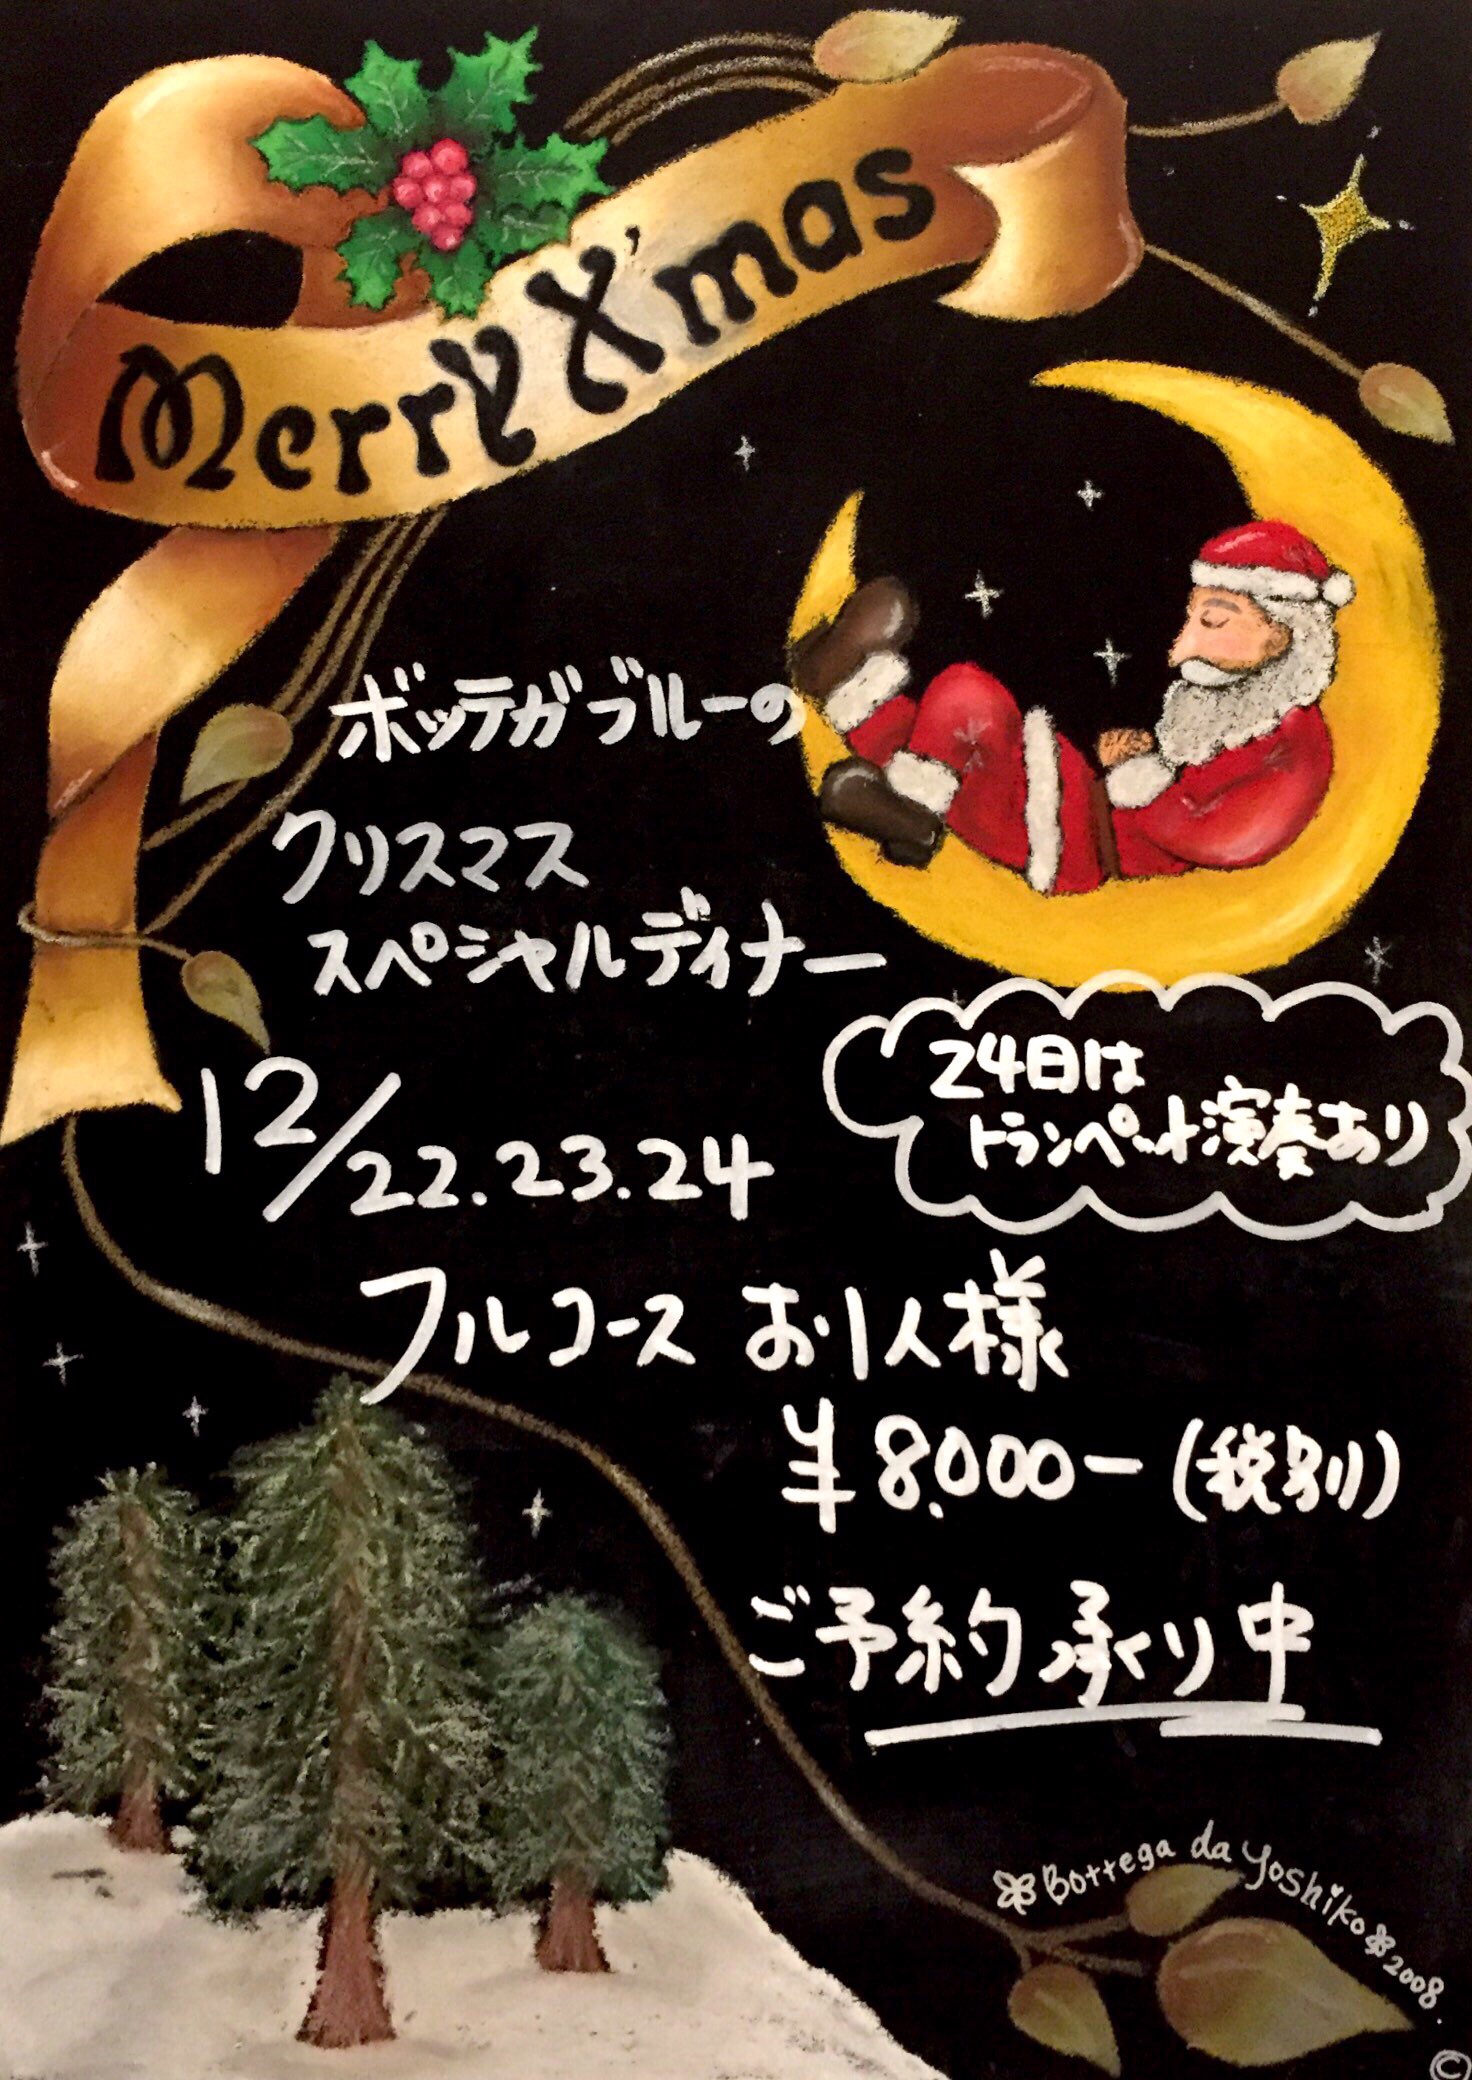 Merry X'mas
ボッテガブルーの
クリスマス
スペシャルディナー
24日は
トランペット演奏あり
12/22.23.24
フルコース お1人様
¥8,000ー(税別)
ご予約承り中
Bottega da Yoshiko 2008.
©